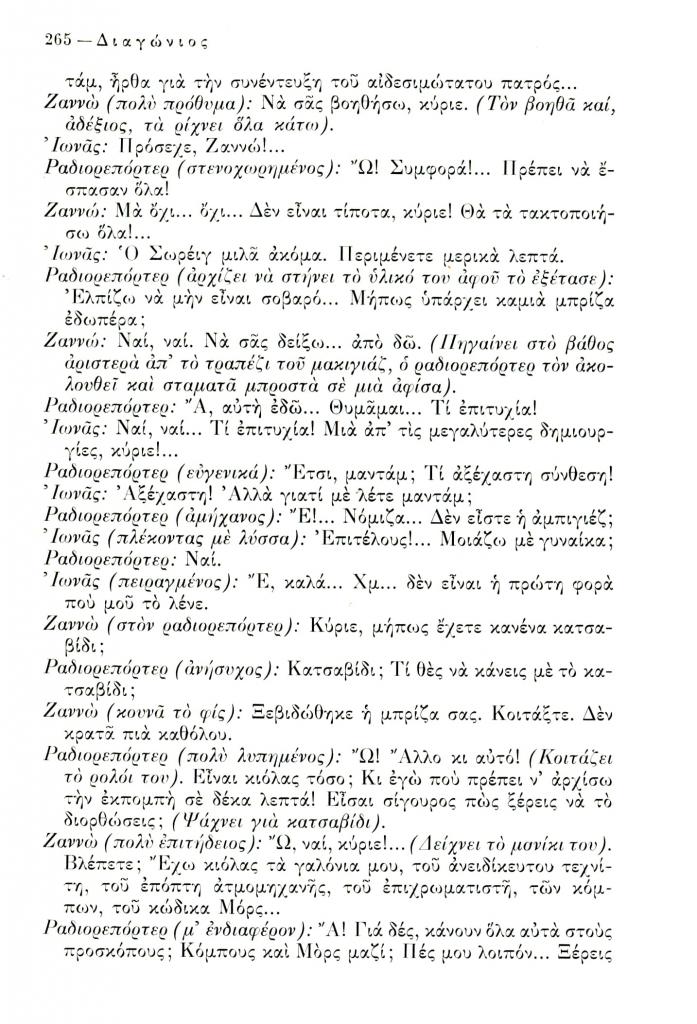 265 — Διαγώνιος
τάμ, ἦρθα γιὰ τὴν συνέντευξη τοῦ αἰδεσιμώτατου πατρός...
Ζαννὼ (πολὺ πρόθυμα): Νὰ σᾶς βοηθήσω, κύριε. (Τὸν βοηθᾶ καί,
ἀδέξιος, τὰ ρίχνει ὅλα κάτω).
Ἰωνᾶς: Πρόσεχε, Ζαννώ!...
Ραδιορεπόρτερ (στενοχωρημένος): Ὤ! Συμφορά!... Πρέπει νὰ ἔ-
σπασαν ὅλα!
Ζαννώ: Μὰ ὄχι... ὄχι... Δὲν εἶναι τίποτα, κύριε! Θὰ τὰ τακτοποιή-
σω ὅλα!...
Ἰωνᾶς: Ὁ Σωρέιγ μιλᾶ ἀκόμα. Περιμένετε μερικὰ λεπτά.
Ραδιορεπόρτερ (ἀρχίζει νὰ στήνει τὸ ὑλικό του ἀφοῦ τὸ ἐξέτασε):
Ἐλπίζω νὰ μὴν εἶναι σοβαρό... Μήπως ὑπάρχει καμιὰ μπρίζα
ἐδωπέρα;
Ζαννώ: Ναί, ναί. Νὰ σᾶς δείξω... ἀπὸ δῶ. (Πηγαίνει στὸ βάθος
ἀριστερὰ ἀπ' τὸ τραπέζι τοῦ μακιγιάζ, ὁ ραδιορεπόρτερ τὸν ἀκο-
λουθεῖ καὶ σταματᾶ μπροστὰ σὲ μιὰ ἀφίσα).
Ραδιορεπόρτερ: Ἄ, αὐτὴ ἐδῶ... Θυμᾶμαι... Τί ἐπιτυχία!
Ἰωνᾶς: Ναί, ναί... Τί ἐπιτυχία! Μιὰ ἀπ' τὶς μεγαλύτερες δημιουρ-
γίες, κύριε!...
Ραδιορεπόρτερ (εὐγενικά): Ἔτσι, μαντάμ; Τί ἀξέχαστη σύνθεση!
Ἰωνᾶς: Ἀξέχαστη! Ἀλλὰ γιατί μὲ λέτε μαντάμ;
Ραδιορεπόρτερ (ἀμήχανος): Ἔ!... Νόμιζα... Δὲν εἶστε ἡ ἀμπιγιέζ;
Ἰωνᾶς (πλέκοντας μὲ λύσσα): Ἐπιτέλους!... Μοιάζω μὲ γυναίκα;
Ραδιορεπόρτερ: Ναί.
Ἰωνᾶς (πειραγμένος): Ἔ, καλά... Χμ... δὲν εἶναι ἡ πρώτη φορὰ
ποὺ μοῦ τὸ λένε.
Ζαννὼ (στὸν ραδιορεπόρτερ): Κύριε, μήπως ἔχετε κανένα κατσα-
βίδι;
Ραδιορεπόρτερ (ἀνήσυχος): Κατσαβίδι; Τί θὲς νὰ κάνεις μὲ τὸ κα-
τσαβίδι;
Ζαννὼ (κουνᾶ τὸ φίς): Ξεβιδώθηκε ἡ μπρίζα σας. Κοιτάξτε. Δὲν
κρατᾶ πιὰ καθόλου.
Ραδιορεπόρτερ (πολὺ λυπημένος): Ὤ! Ἄλλο κι αὐτό! (Κοιτάζει
τὸ ρολόι του). Εἶναι κιόλας τόσο; Κι ἐγὼ ποὺ πρέπει ν' ἀρχίσω
τὴν ἐκπομπὴ σὲ δέκα λεπτά! Εἶσαι σίγουρος πὼς ξέρεις νὰ τὸ
διορθώσεις; (Ψάχνει γιὰ κατσαβίδι).
Ζαννὼ (πολὺ ἐπιτήδειος): Ὤ, ναί, κύριε!... (Δείχνει τὸ μανίκι του).
Βλέπετε; Ἔχω κιόλας τὰ γαλόνια μου, τοῦ ἀνειδίκευτου τεχνί-
τη, τοῦ ἐπόπτη ἀτμομηχανῆς, τοῦ ἐπιχρωματιστῆ, τῶν κόμ-
πων, τοῦ κώδικα Μόρς...
Ραδιορεπόρτερ (μ' ἐνδιαφέρον): Ἄ! Γιά δές, κάνουν ὅλα αὐτὰ στοὺς
προσκόπους; Κόμπους καὶ Μὸρς μαζί; Πές μου λοιπόν... Ξέρεις